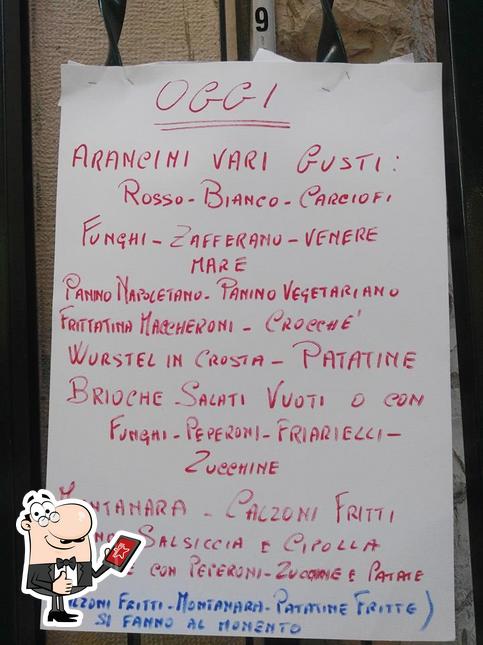 9
OGGI
ARANCINI VARI GUSTI:
ROSSO - BIANCO - CARCIOFI
FUNGHI - ZAFFERANO - VENERE
MARE
PANINO NAPOLETANO - PANINO VEGETARIANO
FRITTATINA MACCHERONI - CROCCHE'
WURSTEL IN CROSTA - PATATINE
BRIOCHE SALATI VUOTI O CON
FUNGHI - PEPERONI - FRIARIELLI -
ZUCCHINE
MONTANARA - CALZONI FRITTI
SALSICCIA E CIPOLLA
CON PEPERONI - ZUCCHINE E PATATE
FRITTI - MONTANARA - PATATINE FRITTE)
SI FANNO AL MOMENTO